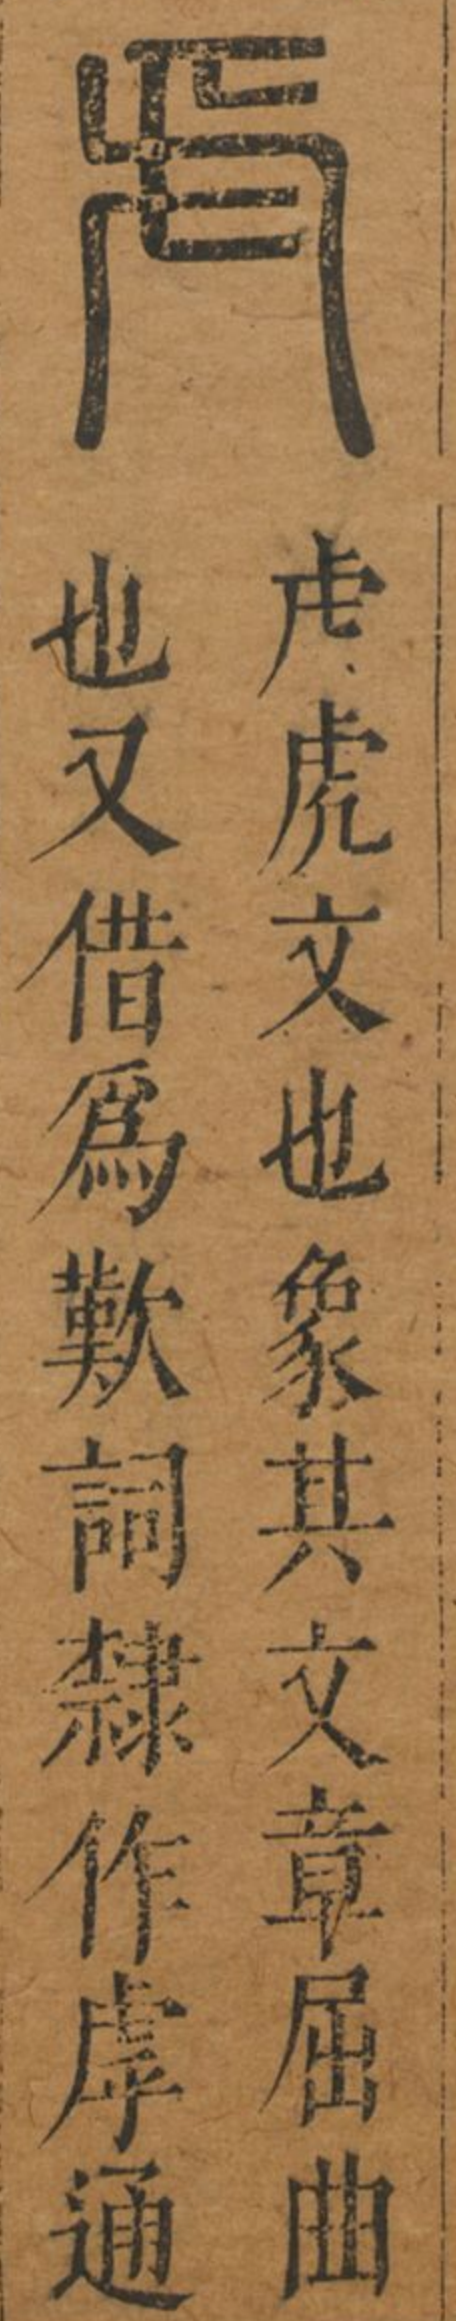 虍
虍虎文也象其文章屈曲
也又借爲歎詞隸作虖通